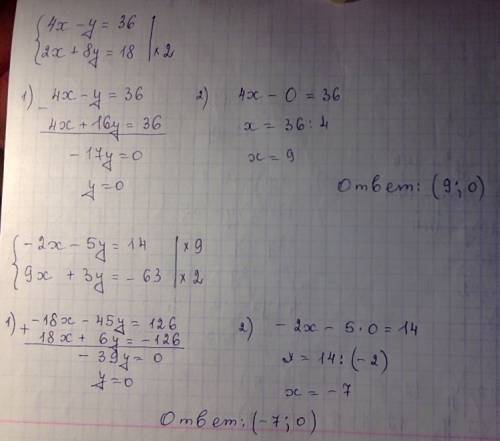 4x - y = 36
2x + 8y = 18 | × 2
1) - 4x - y = 36
4x + 16y = 36
- 17y = 0
y = 0
2) 4x - 0 = 36
x = 36 : 4
x = 9
Ответ: (9; 0)
- 2x - 5y = 14 | × 9
9x + 3y = - 63 | × 2
1) + -18x - 45y = 126
18x + 6y = -126
- 39y = 0
y = 0
2) - 2x - 5 · 0 = 14
x = 14 : (-2)
x = - 7
Ответ: (-7; 0)